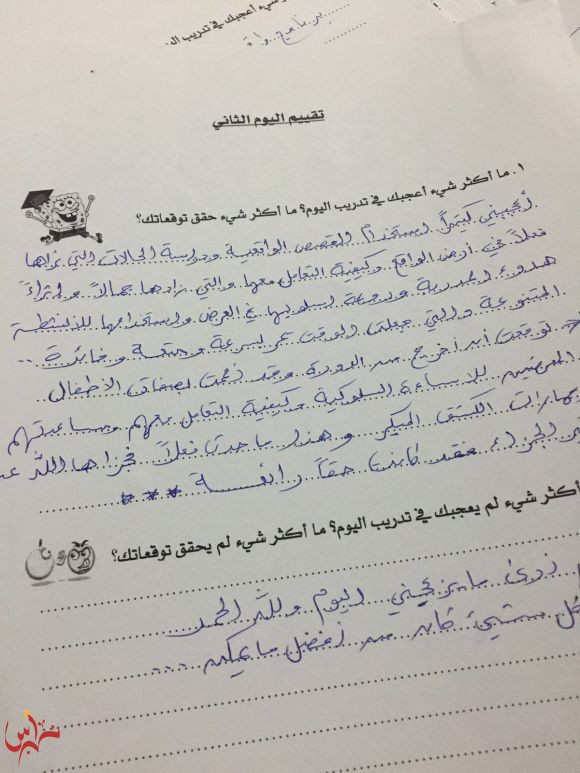 شيء أعجبك في تدريب ال
برنامج
تقييم اليوم الثاني
١. ما أكثر شيء أعجبك في تدريب اليوم؟ ما أكثر شيء حقق توقعاتك؟
أعجبني كثيراً استخدام القصص الواقعية ودراسة الحالات التي نراها
فعلاً في أرض الواقع وكيفية التعامل معها والتي زادها جمالاً وإثراءً
هدوء المدربة وروعة أسلوبها في العرض واستخدامها للأنشطة
المتنوعة والتي جعلت الوقت يمر بسرعة ومتعة وفائدة ..
توقعت أن أخرج من الدورة وقد ألممت بصفات الأطفال
المعرضين للإساءة السلوكية وكيفية التعامل معهم ومساعدتهم
بمهارات الكشف المبكر وهذا ما حدث فعلاً فجزاها الله
الجزاء فقد كانت حقاً رائعة ***
أكثر شيء لم يعجبك في تدريب اليوم؟ ما أكثر شيء لم يحقق توقعاتك؟
ما يزعجني اليوم ولله الحمد
كل شيء كان من أفضل ما يمكن ...
نبراس